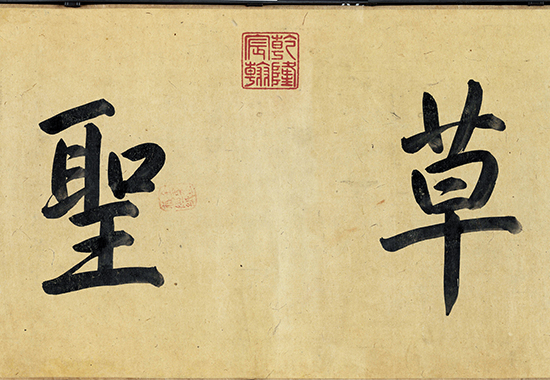 草聖
乾隆宸翰